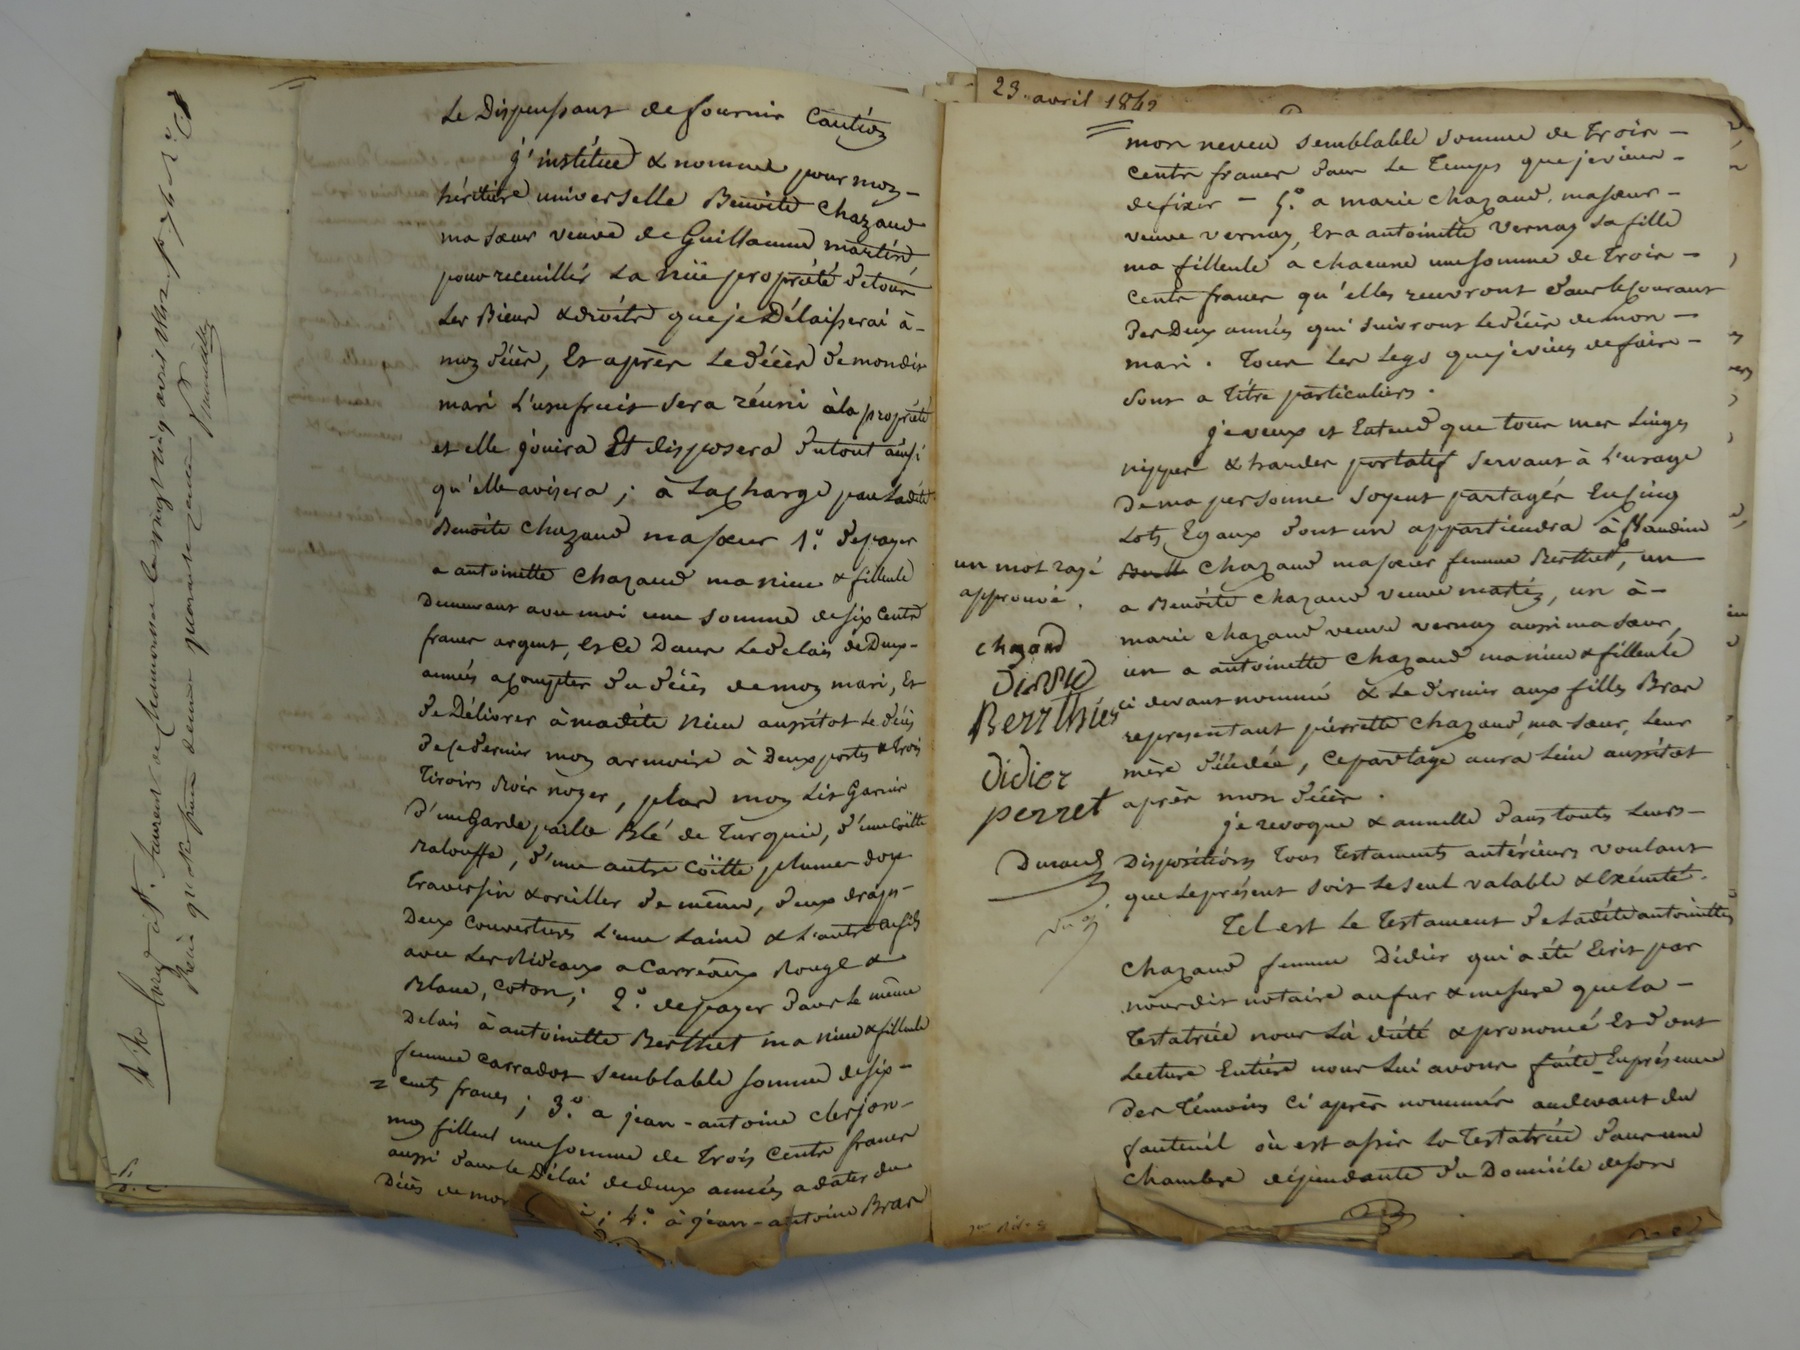 Le Dispensant de fournir Caution
J'institue & nomme pour mon -
héritière universelle Benoîte Chazaud
ma sœur veuve de Guillaume martin
pour recueillir la nüe propriété de tous
les Biens & droits que je Délaisserai à -
mon décès, Et après le décès de mondit
mari l'usufruit sera réuni à la propriété
et elle jouira Et disposera du tout ainsi
qu'elle avisera ; à la charge par ladite
Benoîte Chazaud ma sœur 1.° de payer
a antoinette Chazaud ma niece & filleule
Demeurant avec moi une somme de six Cents
francs argent, et Ce Dans le délai de Deux -
années a compter du décès de mon mari, Et
de Délivrer à madite niece aussitot le décès
de ce dernier mon armoire à Deux portes & trois
Tiroirs bois noyer, plus mon Lit Garni
d'une Garde paille Blé de Turquie, d'une Coëtte
Balouffe, d'une autre Coëtte plumes d'oye
Traversin & oreiller de même, deux draps -
Deux Couvertures l'une laine & l'autre
avec les Rideaux a Carreaux Rouge &
Blanc, Coton ; 2.° de payer dans le même
Delais à antoinette Berthet ma niece & filleule
femme Carradot semblable somme de six -
= cents francs ; 3.° a jean - antoine clerjon -
mon filleul une somme de Trois Cents francs
aussi dans le Délai de deux années a dater du
Décès de mon ; 4.° à jean - antoine Bras
23. avril 1842
mon neveu semblable somme de Trois -
Cents francs dans le Temps que je viens -
de fixer - 5.° a marie Chazaud, ma sœur -
veuve Vernay, Et a antoinette Vernay sa fille
ma filleule a chacune une somme de Trois -
Cents francs qu'elles recevront dans le courant
des Deux années qui suivront le décès de mon -
mari. Tous les legs que je viens de faire -
sont a Titre particuliers.
Je veux et Entend que tous mes Linges
nippes & hardes portatif servant à l'usage
De ma personne soyent partagés En Cinq
Lots Egaux dont un appartiendra à Claudine
Chazaud ma sœur femme Berthet, un
a Benoîte Chazaud veuve martin, un à -
marie Chazaud veuve Vernay aussi ma sœur,
un a antoinette Chazaud ma niece & filleule
ci devant nommé & le dernier aux filles Bras
représentant pierrette Chazaud, ma sœur, leur
mère décédée, Ce partage aura lieu aussitot
après mon décès.
Je revoque & annulle dans touts leurs -
Dispositions Tous Testaments antérieurs voulant
que le présent soit le seul valable & Exécuté.
Tel est le Testament de ladite antoinette
Chazaud femme Didier qui a été Ecrit par
nous dit notaire au fur & mesure que la -
Testatrice nous l'a dicté & prononcé Et dont
Lecture Entière nous lui avons faite En présence
Des Témoins Ci après nommés au devant du
fauteuil où est assise la Testatrice dans une
Chambre dépendante du Domicile de son
un mot rayé
approuvé.
chazaud
Didier
Berrthier
Didier
perret
Durand